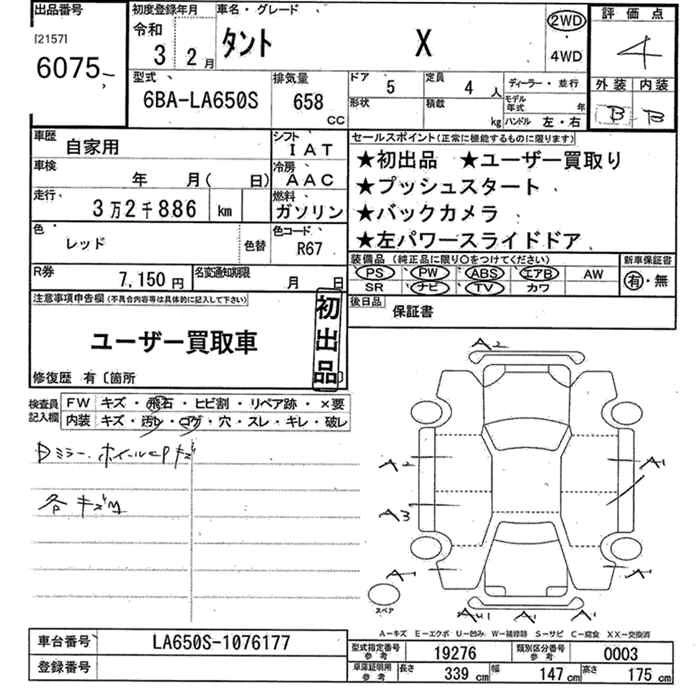 出品番号
[2157]
6075
初度登録年月
令和 3 年 2 月
車名・グレード
タント X
2WD
・
4WD
評価点
4
外装 内装
B B
型式
6BA-LA650S
排気量
658 CC
ドア 5
形状
定員 4 人
積載 kg
ディーラー・並行
モデル年式 年
ハンドル 左・右
車歴
自家用
シフト
IAT
車検
年 月( 日)
冷房
AAC
走行
3万2千886 km
燃料
ガソリン
色
レッド
色替
色コード
R67
R券
7,150円
名変通知期限
月 日
セールスポイント(正常に機能するものに限ります)
★初出品 ★ユーザー買取り
★プッシュスタート
★バックカメラ
★左パワースライドドア
装備品(純正品に限り○をつけてください)
新車保証書
PS PW ABS エアB AW
SR ナビ TV カワ
有・無
後日品
保証書
注意事項申告欄(不具合内容等は具体的に記入して下さい)
ユーザー買取車
初出品
修復歴 有〔箇所 〕
検査員記入欄
FW キズ・飛石・ヒビ割・リペア跡・×要
内装 キズ・汚レ・コゲ・穴・スレ・キレ・破レ
Dミラー、ホイールCPキズ
各キズM
A2
A2
A1
A3
A1
A1
AU1
A1
A1
スペア
A-キズ E-エクボ U-凹み W-補修跡 S-サビ C-腐食 XX-交換済
車台番号
LA650S-1076177
登録番号
型式指定番号
参考
19276
類別区分番号
参考
0003
車庫証明用
参考
長さ 339 cm
幅 147 cm
高さ 175 cm